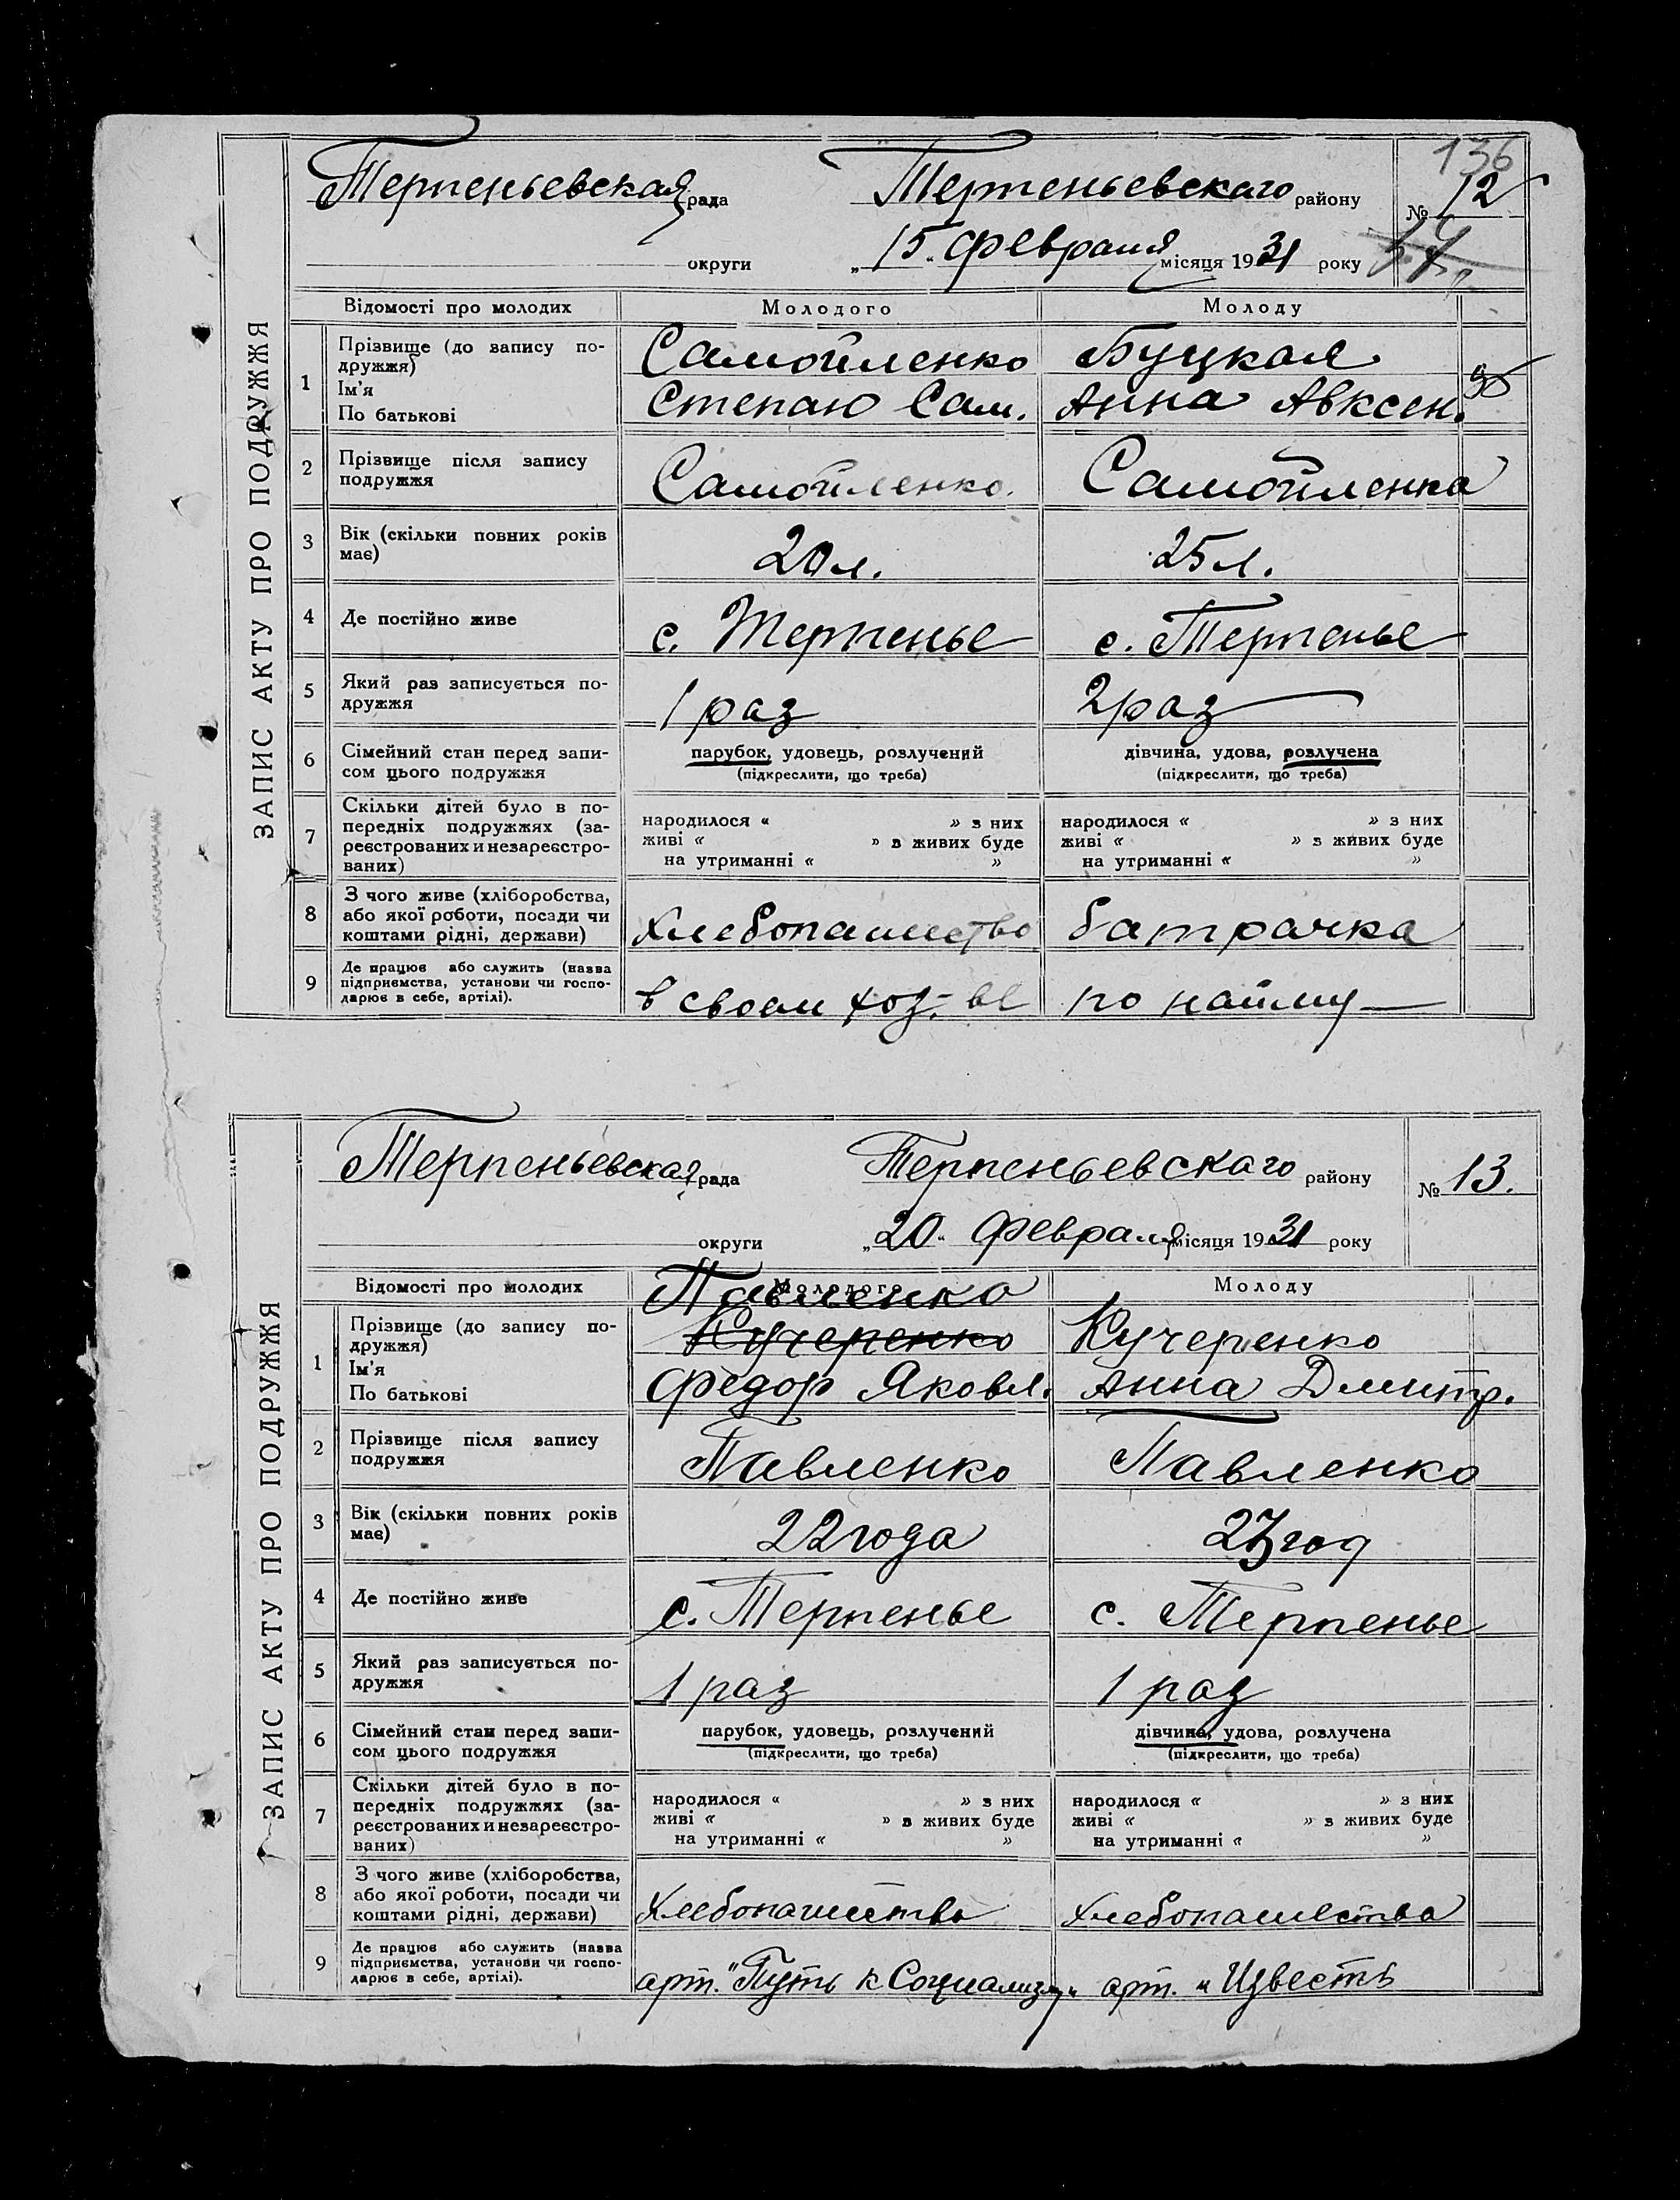 136
Терпеньевская рада Терпеньевскаго району № 12
округи „15“ февраля місяця 1931 року
ЗАПИС АКТУ ПРО ПОДРУЖЖЯ
Відомості про молодих Молодого Молоду
1 Прізвище (до запису подружжя) Самойленко Буцкая
Ім'я
По батькові Степаю Сам. Анна Авксен.
2 Прізвище після запису подружжя Самойленко. Самойленко
3 Вік (скільки повних років має) 20 л. 25 л.
4 Де постійно живе с. Терпенье с. Терпенье
5 Який раз записується подружжя 1 раз 2 раз
6 Сімейний стан перед записом цього подружжя парубок, удовець, розлучений дівчина, удова, розлучена
(підкреслити, що треба) (підкреслити, що треба)
7 Скільки дітей було в попередніх подружжях (зареєстрованих и незареєстрованих) народилося « » з них народилося « » з них
живі « » в живих буде живі « » з живих буде
на утриманні « » на утриманні « »
8 З чого живе (хліборобства, або якої роботи, посади чи коштами рідні, держави) Хлебопашество батрачка
9 Де працює або служить (назва підприємства, установи чи господарює в себе, артілі). в своем хоз-ве по найму
Терпеньевская рада Терпеньевскаго району № 13.
округи „20“ февраля місяця 1931 року
ЗАПИС АКТУ ПРО ПОДРУЖЖЯ
Відомості про молодих Молодого Молоду
Павленко
1 Прізвище (до запису подружжя) Кучеренко Кучеренко
Ім'я
По батькові Федор Яковл. Анна Дмитр.
2 Прізвище після запису подружжя Павленко Павленко
3 Вік (скільки повних років має) 22 года 23 год
4 Де постійно живе с. Терпенье с. Терпенье
5 Який раз записується подружжя 1 раз 1 раз
6 Сімейний стан перед записом цього подружжя парубок, удовець, розлучений дівчина, удова, розлучена
(підкреслити, що треба) (підкреслити, що треба)
7 Скільки дітей було в попередніх подружжях (зареєстрованих и незареєстрованих) народилося « » з них народилося « » з них
живі « » в живих буде живі « » з живих буде
на утриманні « » на утриманні « »
8 З чого живе (хліборобства, або якої роботи, посади чи коштами рідні, держави) Хлебопашество Хлебопашества
9 Де працює або служить (назва підприємства, установи чи господарює в себе, артілі). арт. "Путь к Социализму" арт. "Известь